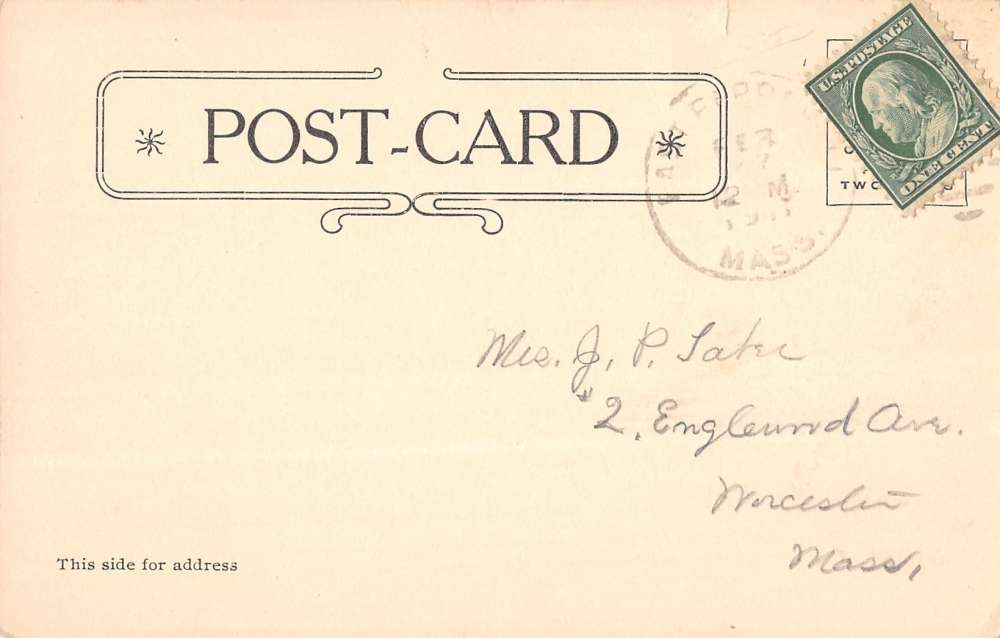 POST-CARD
U.S. POSTAGE
ONE CENT
TWO
12 M
MASS.
Mrs. J. P.
#2, Englewood Ave.
Worcester
Mass,
This side for address